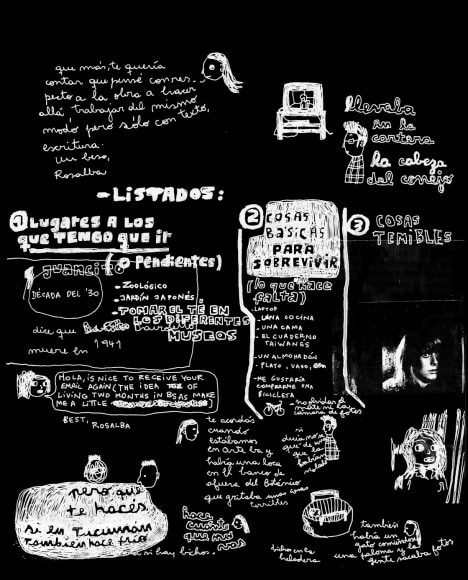 que más, te quería
contar que pensé con res-
pecto a la obra a hacer
allá, trabajar del mismo
modo pero sólo con texto,
escritura.
un beso,
Rosalba
llevaba
en la
cartera
la cabeza
del conejo
- LISTADOS:
1 LUGARES A LOS
que TENGO que ir
(o pendientes)
guancito
DÉCADA DEL '30
- ZOOLÓGICO
- JARDÍN JAPONÉS,
- TOMAR EL TÉ EN
LOS DIFERENTES
MUSEOS
dice que
muere en 1941
2 COSAS
BÁSICAS
PARA
SOBREVIVIR
(lo que hace
falta)
- LAPTOP
- UNA COCINA
- UNA CAMA
- EL CUADERNO
TAIWANES
- UN ALMOHADÓN
- PLATO, VASO,
- ME GUSTARÍA
COMPRARME UNA
BICICLETA
- no olvidar el
mate ni la
cámara de fotos
3 COSAS
TEMIBLES
HOLA, IS NICE TO RECEIVE YOUR
EMAIL AGAIN (THE IDEA OF
LIVING TWO MONTHS IN BS AS MAKE
ME A LITTLE
BEST, ROSALBA
te acordás
cuando
estábamos
en arte ba y
había una loca
en el banco de
afuera del Botánico
que gritaba
terribles
pero que
te haces
si en Tucumán
también hace frío
si hay bichos.
hace
cuanto
que no
vas
bicho en la
heladera
también
había un
gato comiendo
una paloma y la
gente sacaba fotos